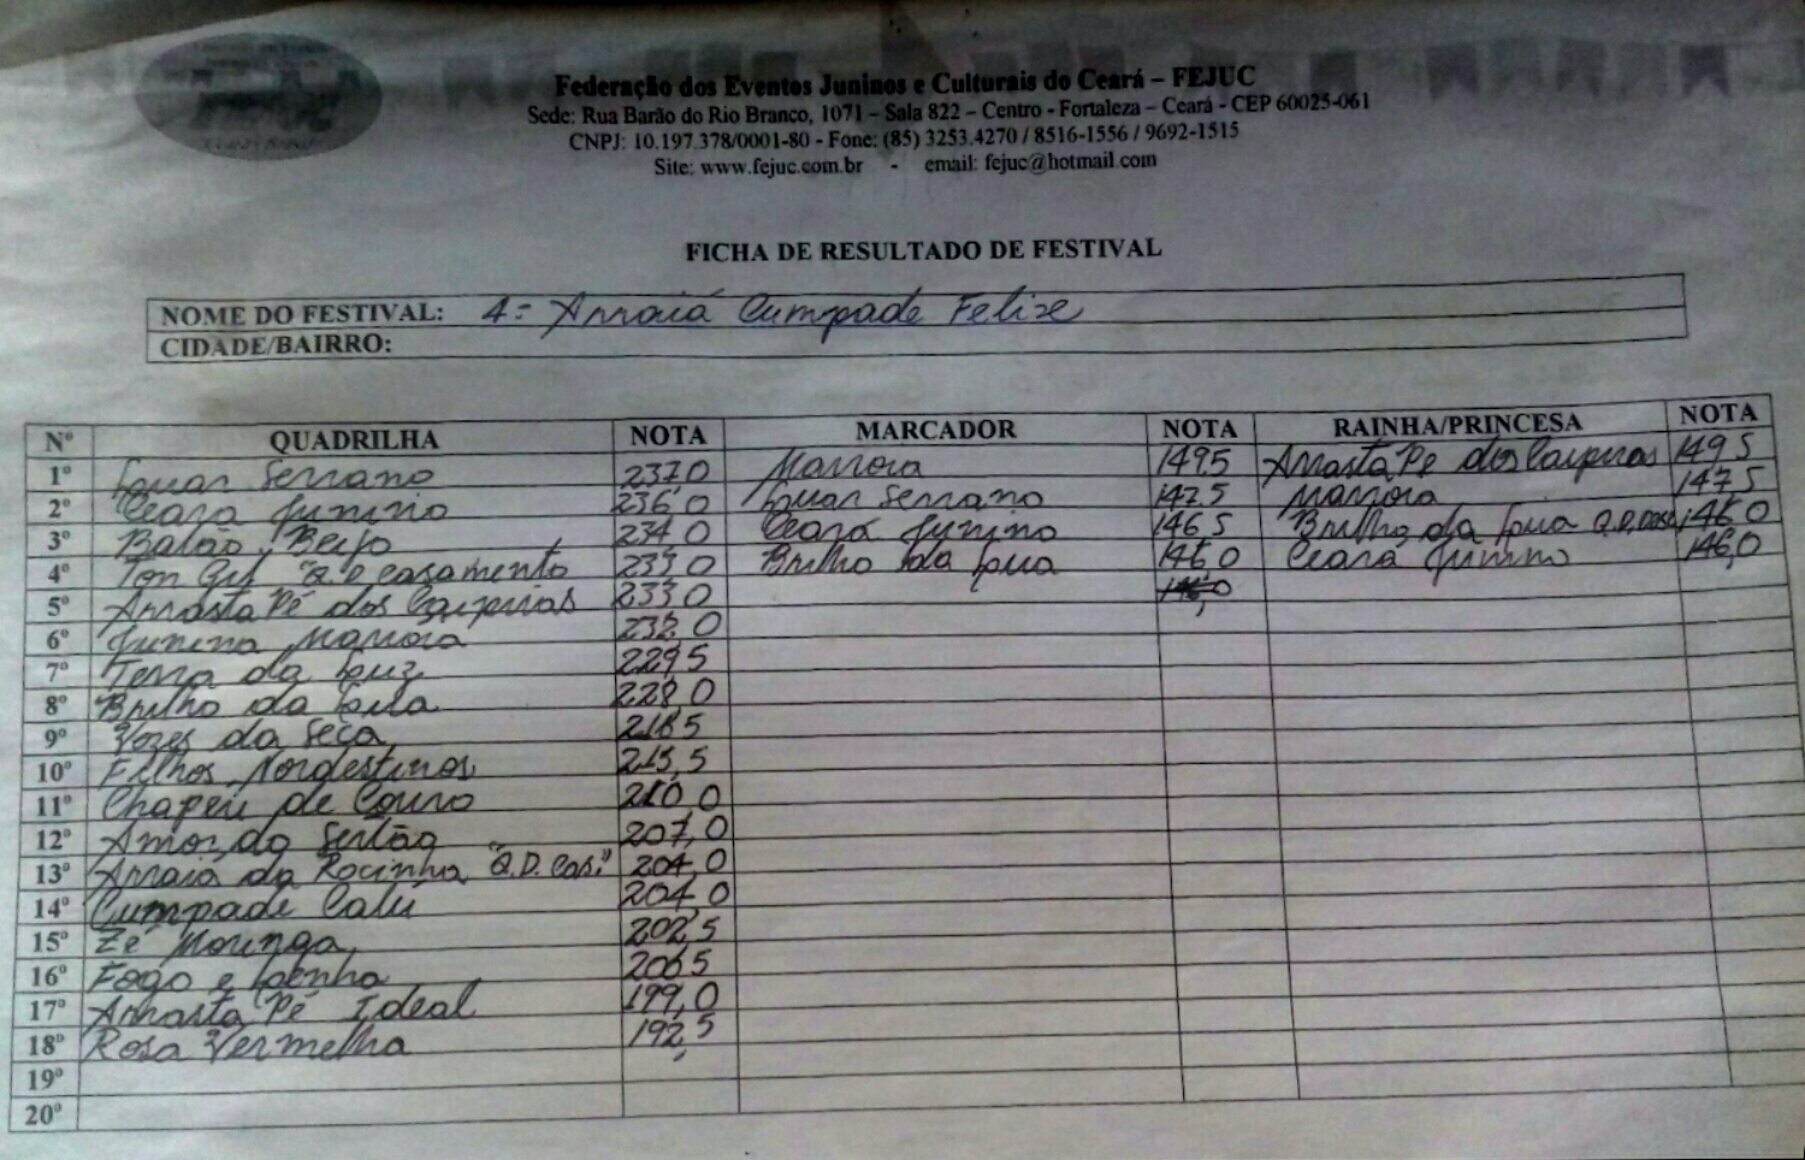 Federação dos Eventos Juninos e Culturais do Ceará – FEJUC
Sede: Rua Barão do Rio Branco, 1071 – Sala 822 – Centro - Fortaleza – Ceará - CEP 60025-061
CNPJ: 10.197.378/0001-80 - Fone: (85) 3253.4270 / 8516-1556 / 9692-1515
Site: www.fejuc.com.br - email: fejuc@hotmail.com
FICHA DE RESULTADO DE FESTIVAL
NOME DO FESTIVAL: 4º Arraiá Cumpade Felize
CIDADE/BAIRRO:
Nº QUADRILHA NOTA MARCADOR NOTA RAINHA/PRINCESA NOTA
1º Luar Serrano 237,0 Marrora 149,5 Arrasta Pé dos Caipiras 149,5
2º Ceará Junino 236,0 Luar Serrano 147,5 Marrora 147,5
3º Balão Beijo 234,0 Ceará Junino 146,5 Brilho da Lua Q.D. 146,0
4º Ton Gil "Q.D casamento 233,0 Brilho da Lua 146,0 Ceará Junino 146,0
5º Arrasta Pé dos Caipiras 233,0
6º Junina Marrora 232,0
7º Terra da Luz 229,5
8º Brilho da Lua 228,0
9º Vozes da Seca 218,5
10º Filhos Nordestinos 215,5
11º Chapéu de Couro 210,0
12º Amor do Sertão 207,0
13º Arraiá da Rocinha "Q.D. Cas." 204,0
14º Cumpade Calú 204,0
15º Zé Moringa 202,5
16º Fogo e Lenha 200,5
17º Arrasta Pé Ideal 199,0
18º Rosa Vermelha 192,5
19º
20º